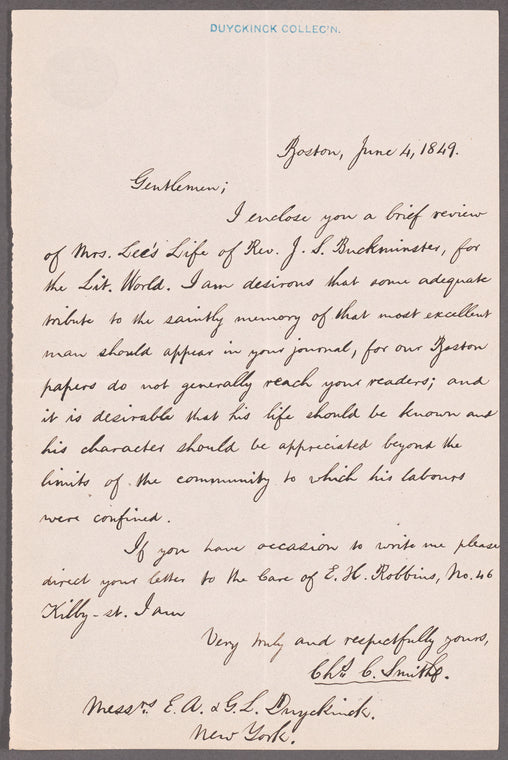 DUYCKINCK COLLEC'N.
Boston, June 4, 1849.
Gentlemen;
I enclose you a brief review
of Mrs. Lee's Life of Rev. J. S. Buckminster, for
the Lit. World. I am desirous that some adequate
tribute to the saintly memory of that most excellent
man should appear in your journal, for our Boston
papers do not generally reach your readers; and
it is desirable that his life should be known and
his character should be appreciated beyond the
limits of the community to which his labours
were confined.
If you have occasion to write me please
direct your letter to the Care of E. H. Robbins, No. 46
Kilby-st. I am
Very truly and respectfully yours,
Chs. C. Smith.
Messrs. E. A. & G. L. Duyckinck.
New York.